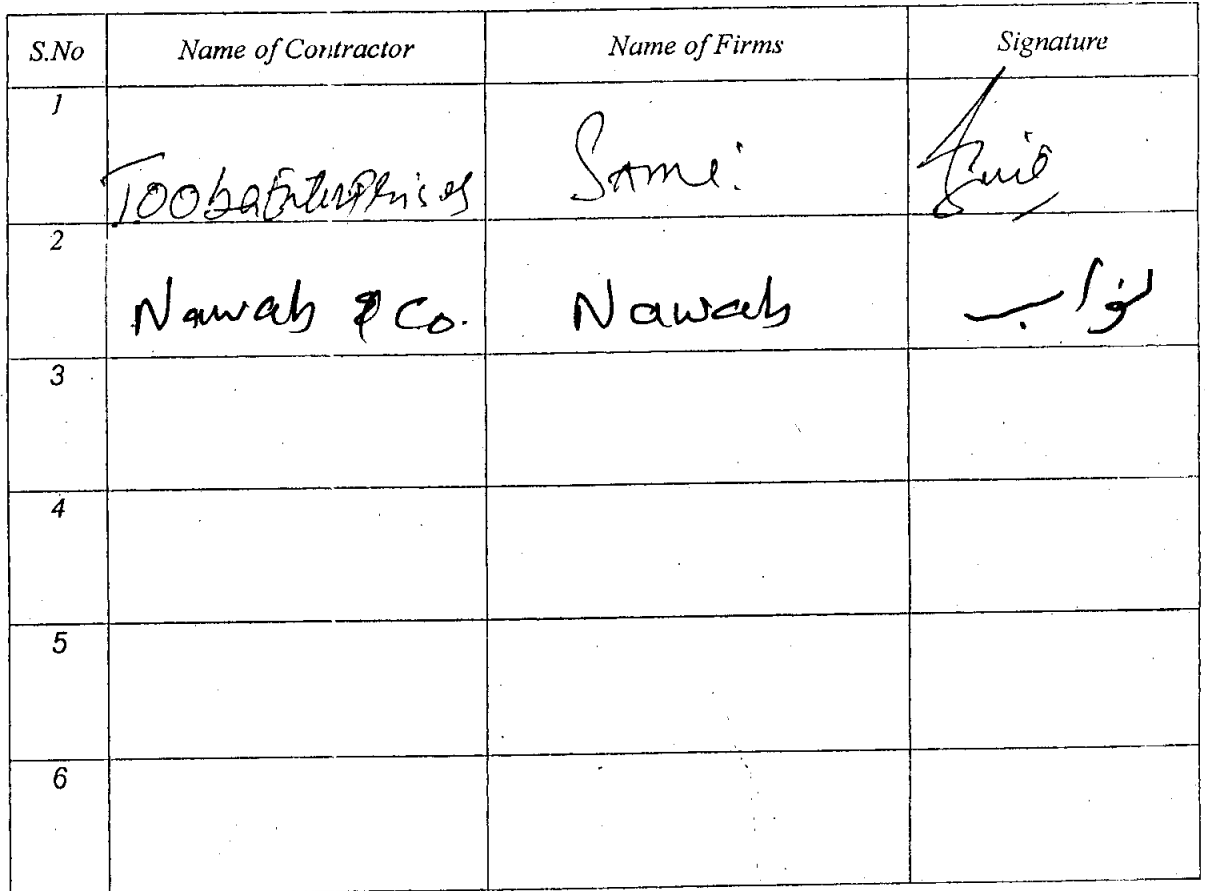 S.No Name of Contractor Name of Firms Signature
1 Tooba Enterprises Same:
2 Nawab & Co. Nawab نواب
3
4
5
6